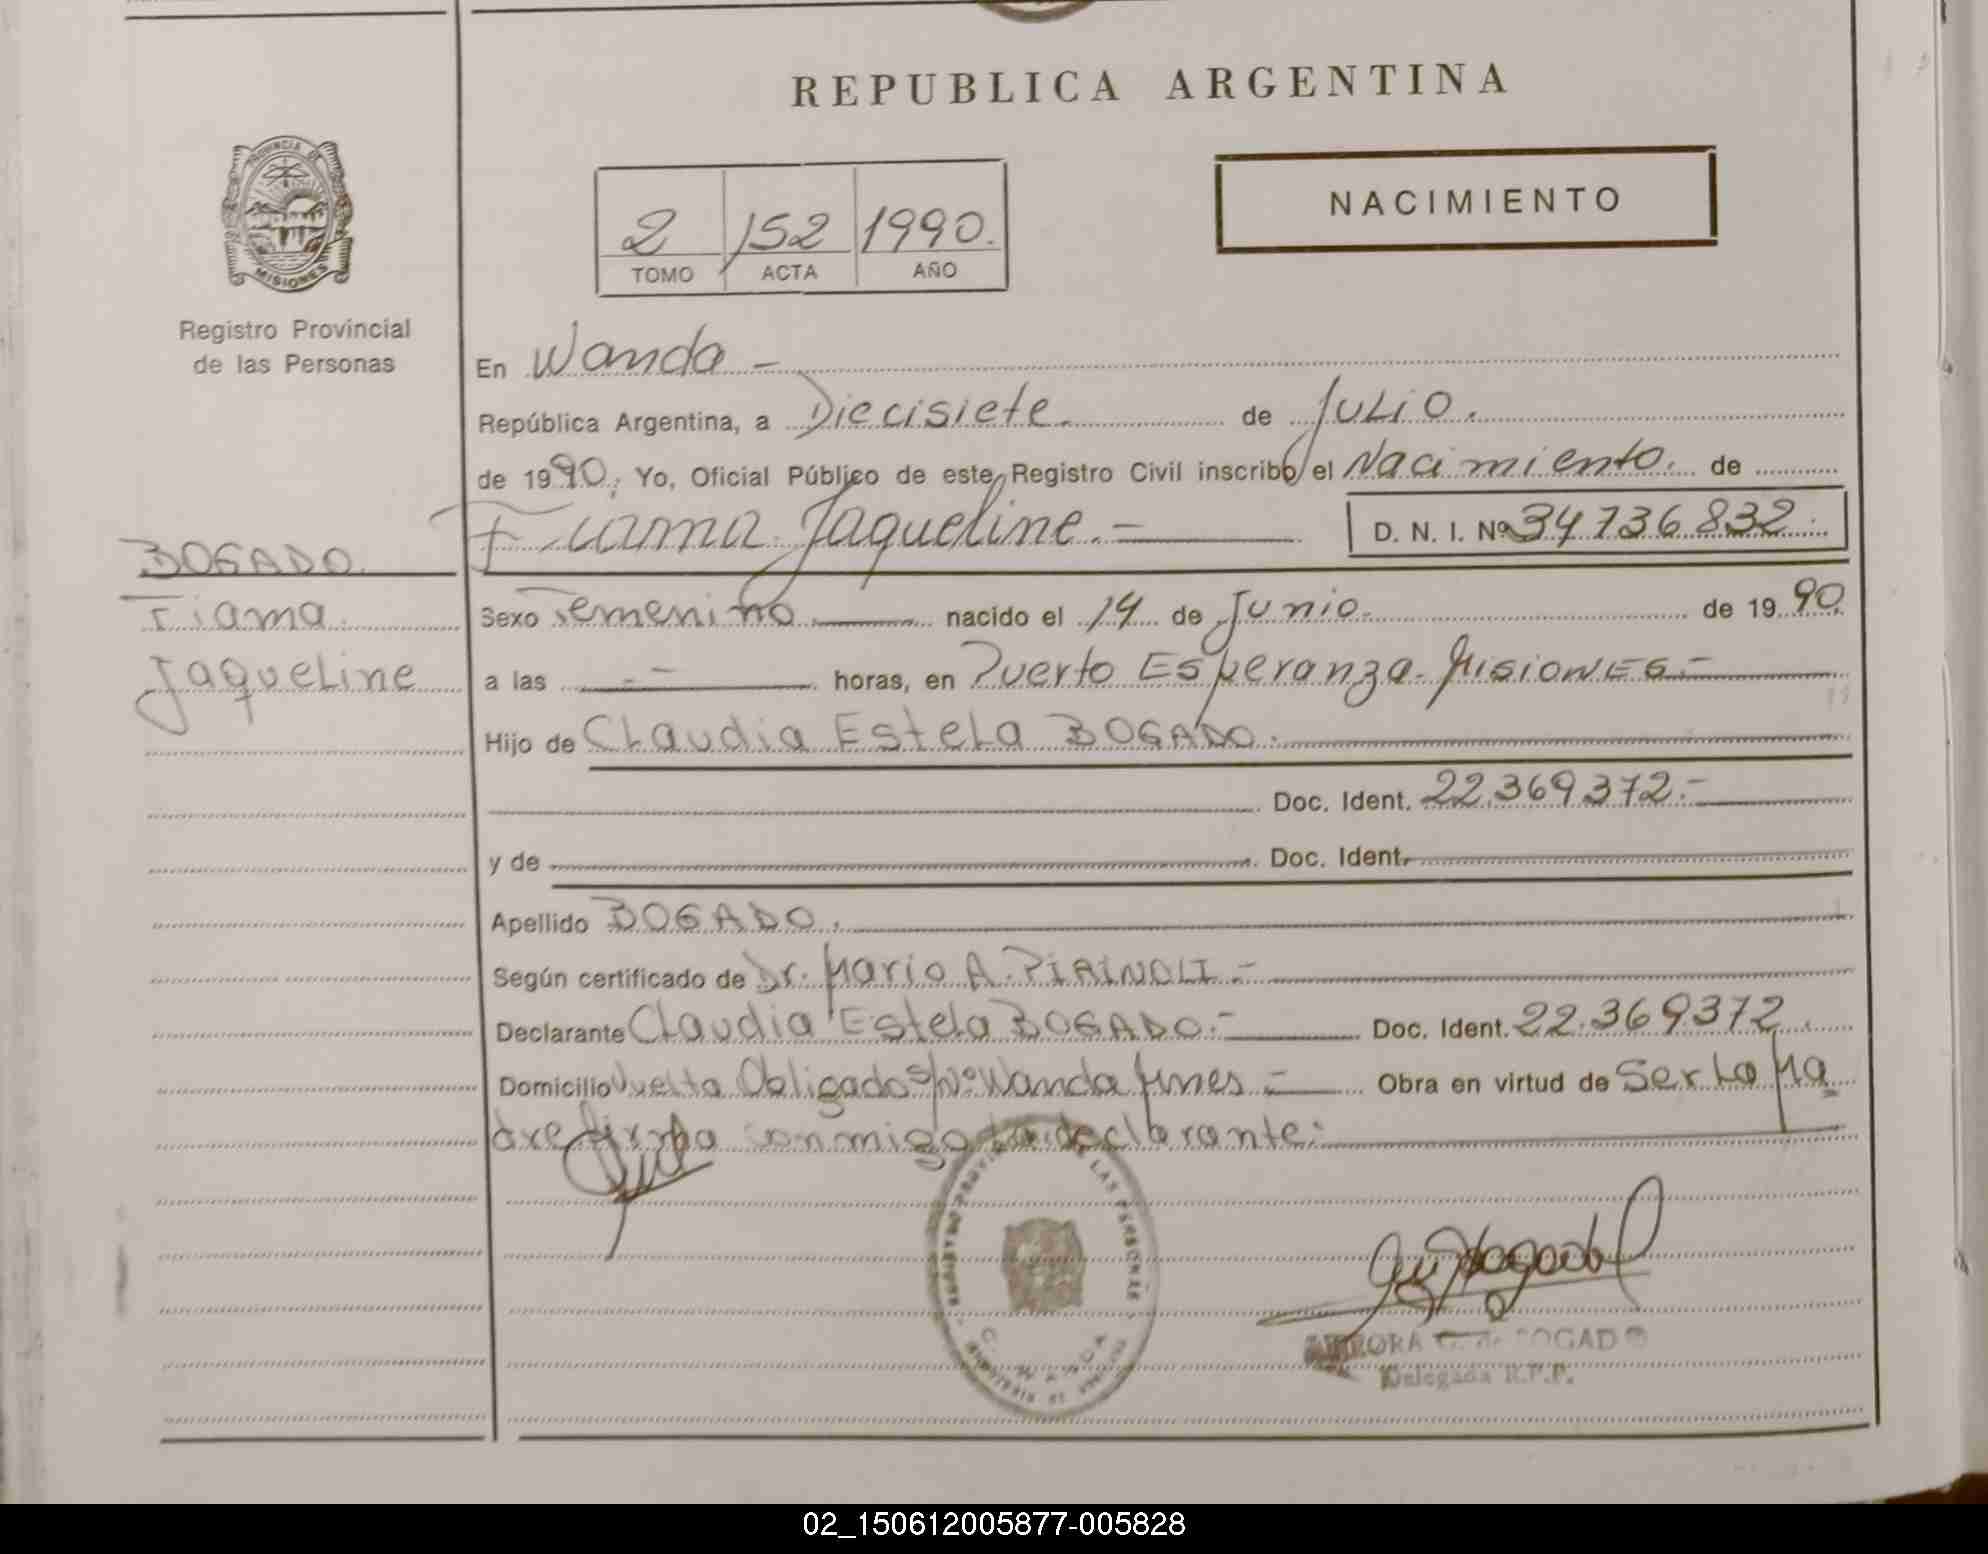 REPUBLICA ARGENTINA
PROVINCIA DE
MISIONES
Registro Provincial
de las Personas
2 152 1990.
TOMO ACTA AÑO
NACIMIENTO
En Wanda -
República Argentina, a Diecisiete. de Julio.
de 1990; Yo, Oficial Público de este Registro Civil inscribo el Nacimiento. de
Fiama Jaqueline.- D. N. I. Nº 34736832.
BOGADO.
Fiama
Jaqueline
Sexo Femenino. nacido el 14 de Junio. de 1990.
a las -- horas, en Puerto Esperanza-Misiones.-
Hijo de Claudia Estela BOGADO.
Doc. Ident. 22.369.372.-
y de Doc. Ident.
Apellido BOGADO.
Según certificado de Dr. Mario A.
Declarante Claudia Estela BOGADO.- Doc. Ident. 22.369.372.
Domicilio Vuelta Obligado s/Nº Wanda Mnes.- Obra en virtud de Ser La Ma
dre firma conmigo La declarante.
REGISTRO PROVINCIAL DE LAS PERSONAS
WANDA
BOGADO
Delegada R.P.P.
02_150612005877-005828